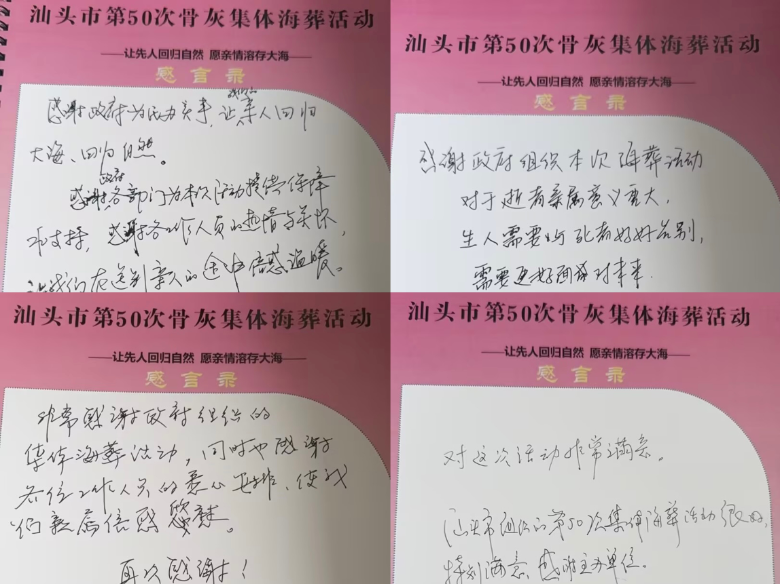 汕头市第50次骨灰集体海葬活动
——让先人回归自然 愿亲情溶存大海——
感言录
我们的
感谢政府为民办实事,让亲人回归
大海、回归自然。
政府
感谢各部门为本次活动提供保障
和支持,感谢各工作人员的热情与关怀,
让我们在送别亲人的途中倍感温暖。
汕头市第50次骨灰集体海葬活动
——让先人回归自然 愿亲情溶存大海——
感言录
感谢政府组织本次海葬活动
对于逝者亲属意义重大,
生人需要与死者好好告别,
需要更好面对未来.
汕头市第50次骨灰集体海葬活动
——让先人回归自然 愿亲情溶存大海——
感言录
非常感谢政府组织的
集体海葬活动,同时也感谢
各位工作人员的悉心安排、使我
们亲属倍感慰藉。
再次感谢!
汕头市第50次骨灰集体海葬活动
——让先人回归自然 愿亲情溶存大海——
感言录
对这次活动非常满意。
汕头市组织的第50次集体海葬活动很好,
特别满意、感谢主办单位。